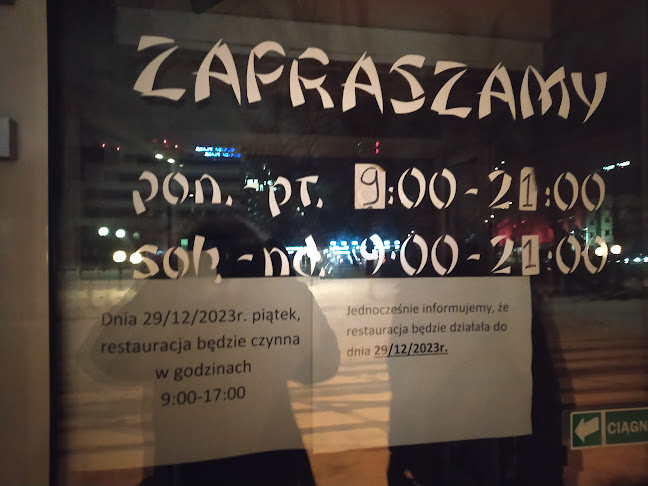 ZAPRASZAMY
pon. - pt. 9:00 - 21:00
sob. - nd. 9:00 - 21:00
Dnia 29/12/2023r. piątek,
restauracja będzie czynna
w godzinach
9:00-17:00
Jednocześnie informujemy, że
restauracja będzie działała do
dnia 29/12/2023r.